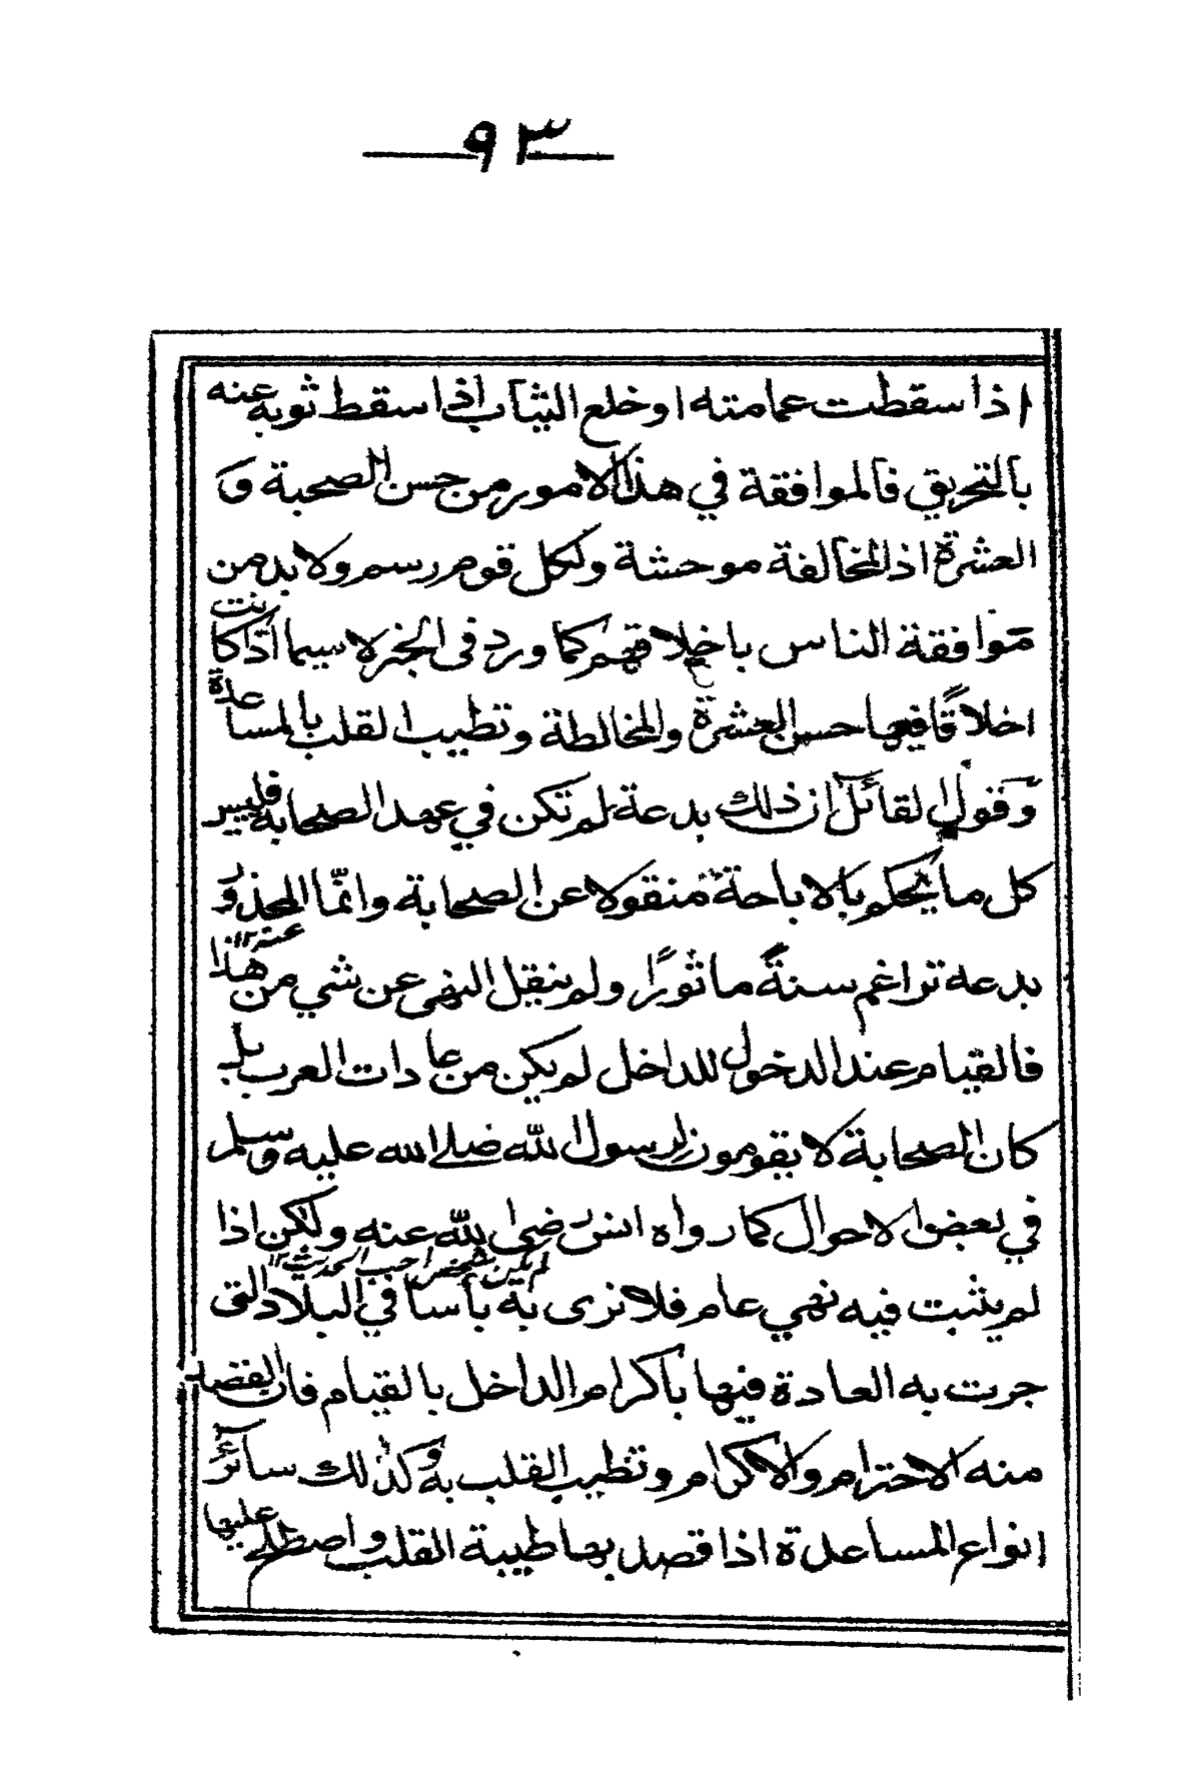 ٩٣
اذا سقطت عمامته او خلع الثياب اذا سقط ثوبه عنه
بالتحريق فالموافقة في هذا الامور من حسن الصحبة و
العشرة اذ المخالفة موحشة ولكل قوم رسم ولا بد من
موافقة الناس باخلاقهم كما ورد في الخبر لا سيما اذا كانت
اخلاقًا فيها حسن العشرة والمخالطة وتطييب القلب بالمساعدة
وقول القائل ان ذلك بدعة لم تكن في عهد الصحابة فليس
كل ما يحكم بالاباحة منقولا عن الصحابة وانّما المحذور
بدعه تراغم سنةً ماثورًا ولم ينقل النهى عن شي من هذا
فالقيام عند الدخول للداخل لم يكن من عادات العرب بل
كان الصحابة لا يقومون لرسول الله صلى الله عليه وسلم
في بعض الاحوال كما رواه انس رضى الله عنه ولكن اذا
لم يثبت فيه نهي عام فلا نرى به بأسا في البلاد التى
جرت به العادة فيها باكرام الداخل بالقيام فان القصد
منه الاحترام والاكرام وتطييب القلب به وكذلك سائر
انواع المساعدة اذا قصد بها طيبة القلب واصطلح عليها